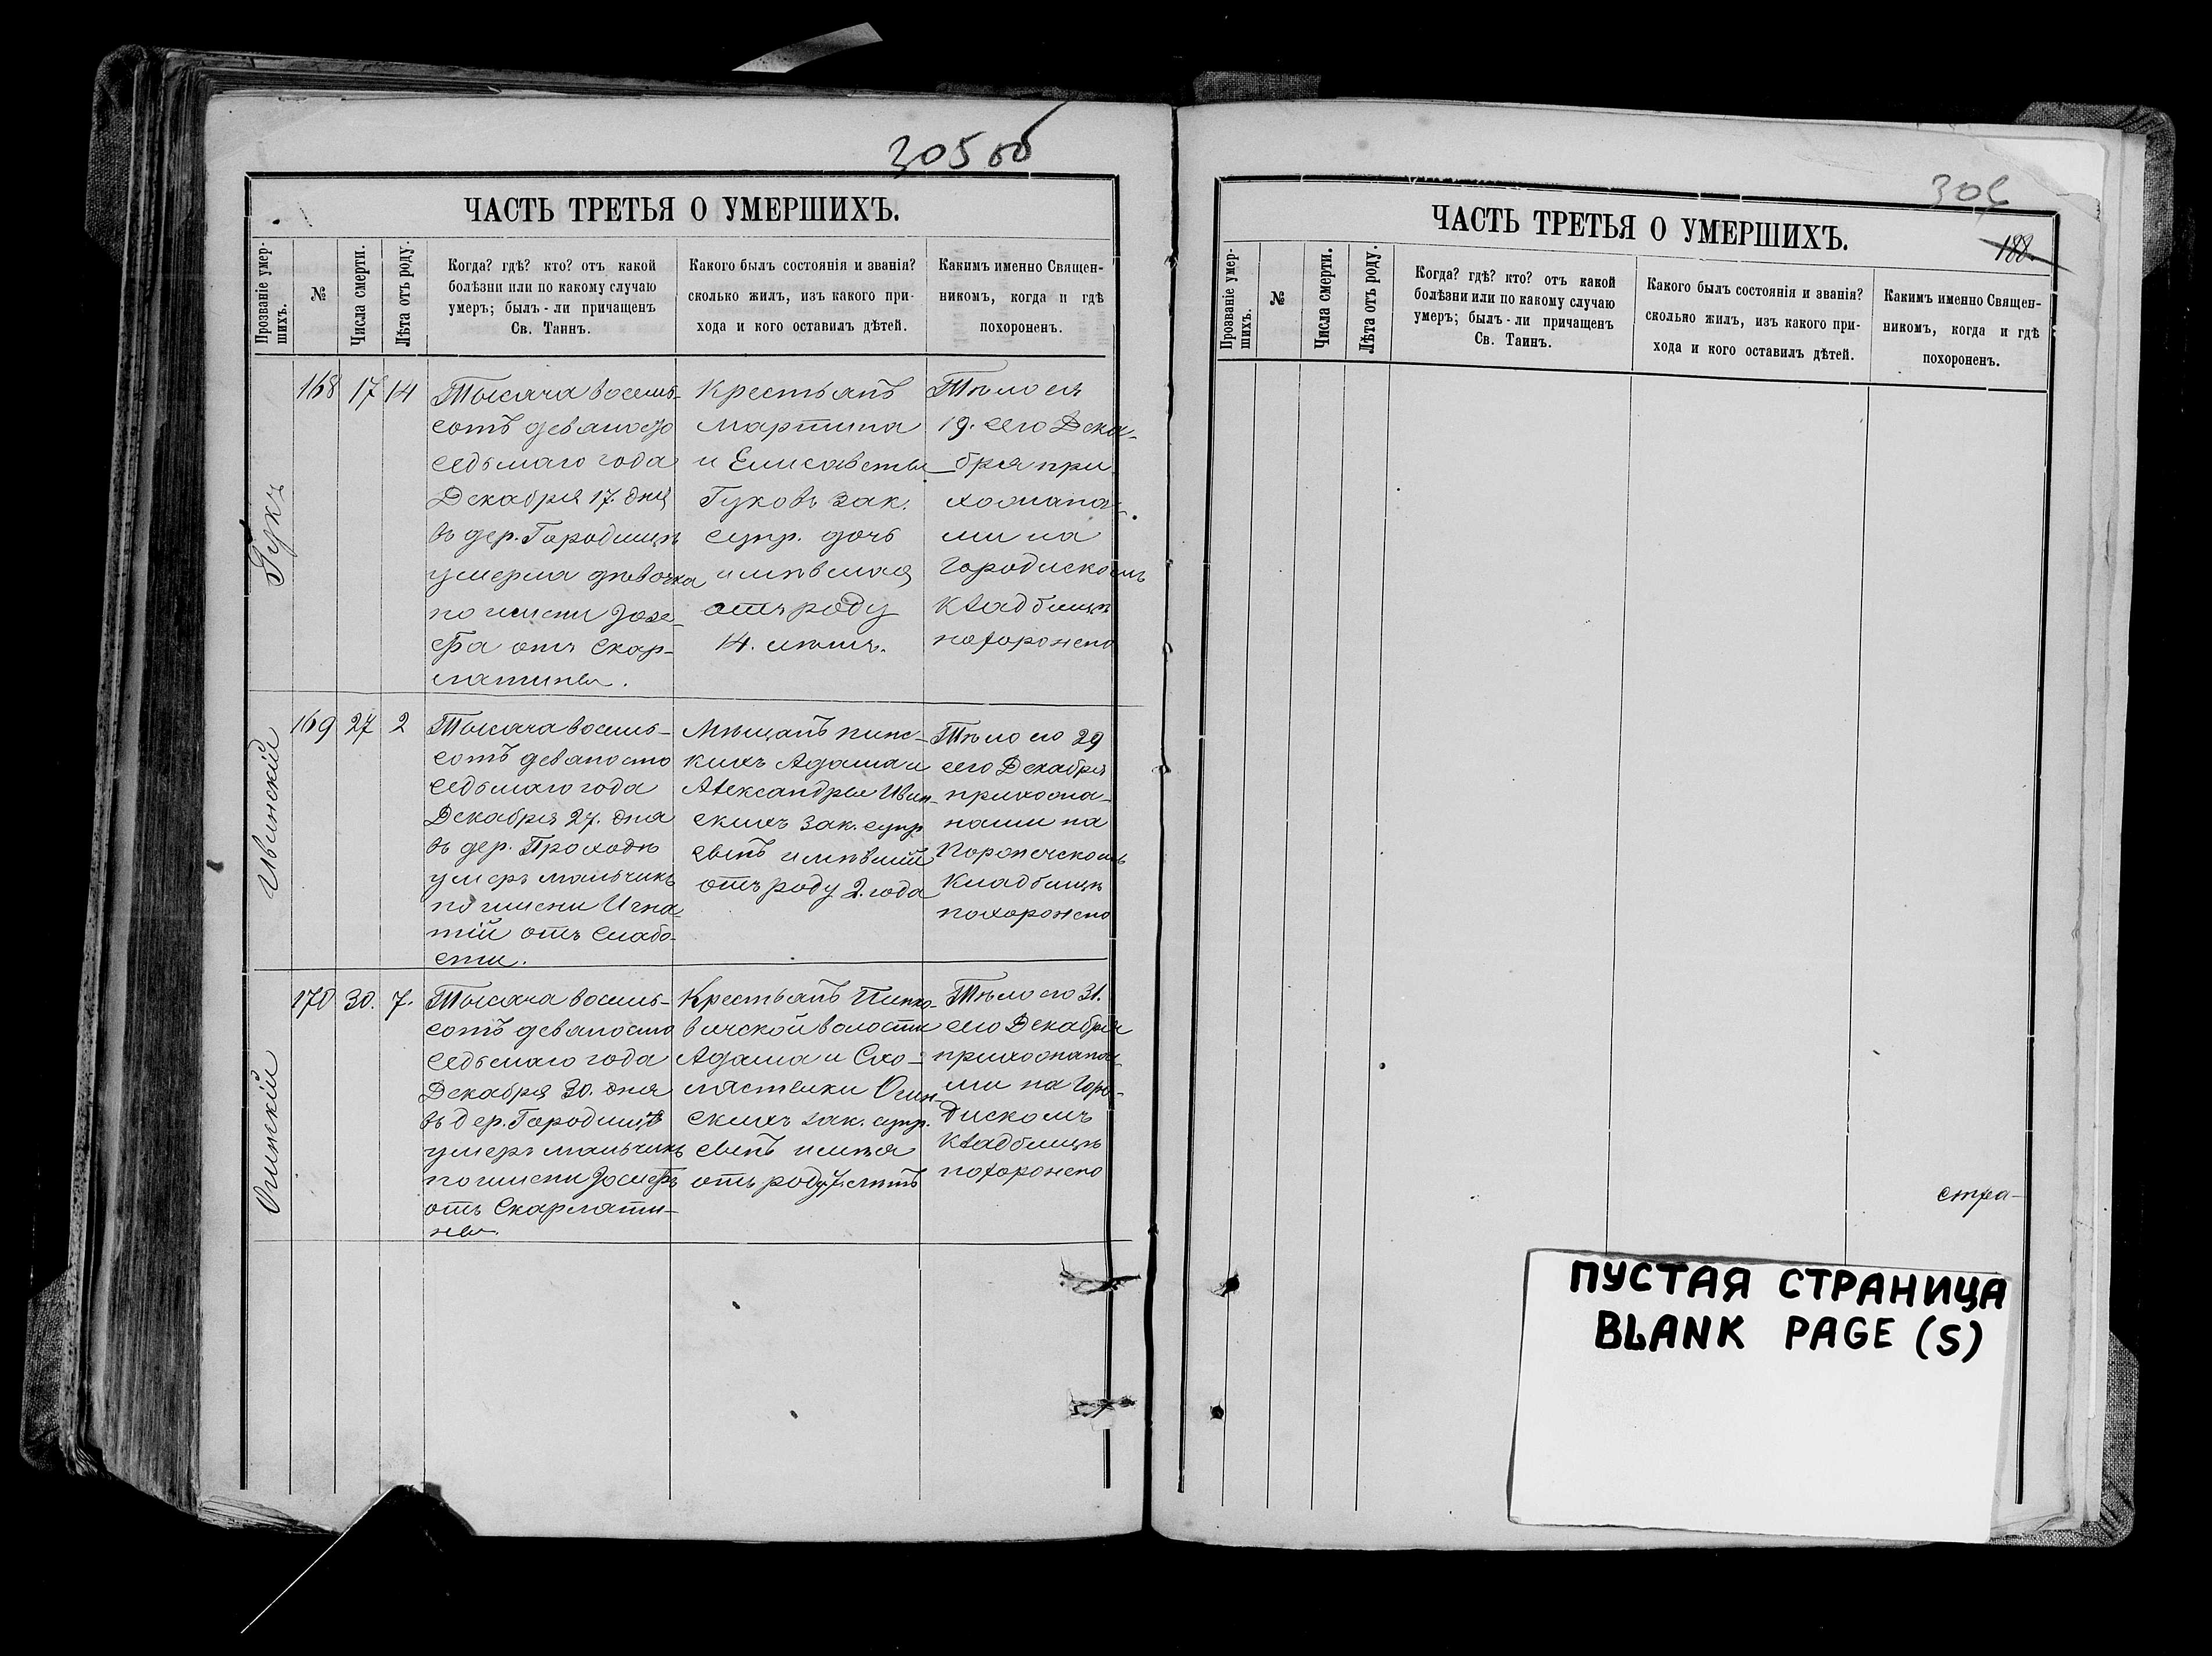 305 об
ЧАСТЬ ТРЕТЬЯ О УМЕРШИХЪ.
Прозваніе умер-
шихъ.
№
Числа смерти.
Лѣта отъ роду.
Когда? гдѣ? кто? отъ какой
болѣзни или по какому случаю
умеръ; былъ-ли причащенъ
Св. Таинъ.
Какого былъ состоянія и званія?
сколько жилъ, изъ какого при-
хода и кого оставилъ дѣтей.
Какимъ именно Священ-
никомъ, когда и гдѣ
похороненъ.
Гукъ
168
17
14
Тысяча восемь-
сотъ девяносто
седьмаго года
Декабря 17. дня
въ дер. Городищѣ
умерла дѣвочка
по имени Юзе-
фа отъ скар-
латины.
Крестьянъ
Мартина
и Елисаветы
Гуковъ зак.
супр. дочь
имѣвшая
отъ роду
14. лѣтъ.
Тѣло ея
19. сего Дека-
бря при-
хожана-
ми на
Городискомъ
кладбищѣ
похоронено
Ивинскій
169
27
2
Тысяча восемь-
сотъ девяносто
седьмаго года
Декабря 27. дня
въ дер. Проходѣ
умеръ мальчикъ
по имени Игна-
тій отъ слабо-
сти.
Мѣщанъ пинс-
кихъ Адама и
Александры Ивин-
скихъ зак. супр
сынъ имѣвшій
отъ роду 2. года
Тѣло его 29
сего Декабря
прихожа-
нами на
кладбищѣ
похоронено
Осинскій
170
30.
7.
Тысяча восемь-
сотъ девяносто
седьмаго года
Декабря 30. дня
въ дер. Городищѣ
умеръ мальчикъ
по имени Іосифъ
отъ скарлати-
ны.
Крестьянъ Пинко-
вичской волости
Адама и Схо-
ластыки Осин-
скихъ зак. супр.
сынъ имѣя
отъ роду 7. лѣтъ
Тѣло его 31.
сего Декабря
прихожана-
ми на Горо-
дискомъ
кладбищѣ
похоронено
306
188.
ЧАСТЬ ТРЕТЬЯ О УМЕРШИХЪ.
Прозваніе умер-
шихъ.
№
Числа смерти.
Лѣта отъ роду.
Когда? гдѣ? кто? отъ какой
болѣзни или по какому случаю
умеръ; былъ-ли причащенъ
Св. Таинъ.
Какого былъ состоянія и званія?
сколько жилъ, изъ какого при-
хода и кого оставилъ дѣтей.
Какимъ именно Священ-
никомъ, когда и гдѣ
похороненъ.
стра-
ПУСТАЯ СТРАНИЦА
BLANK PAGE (S)